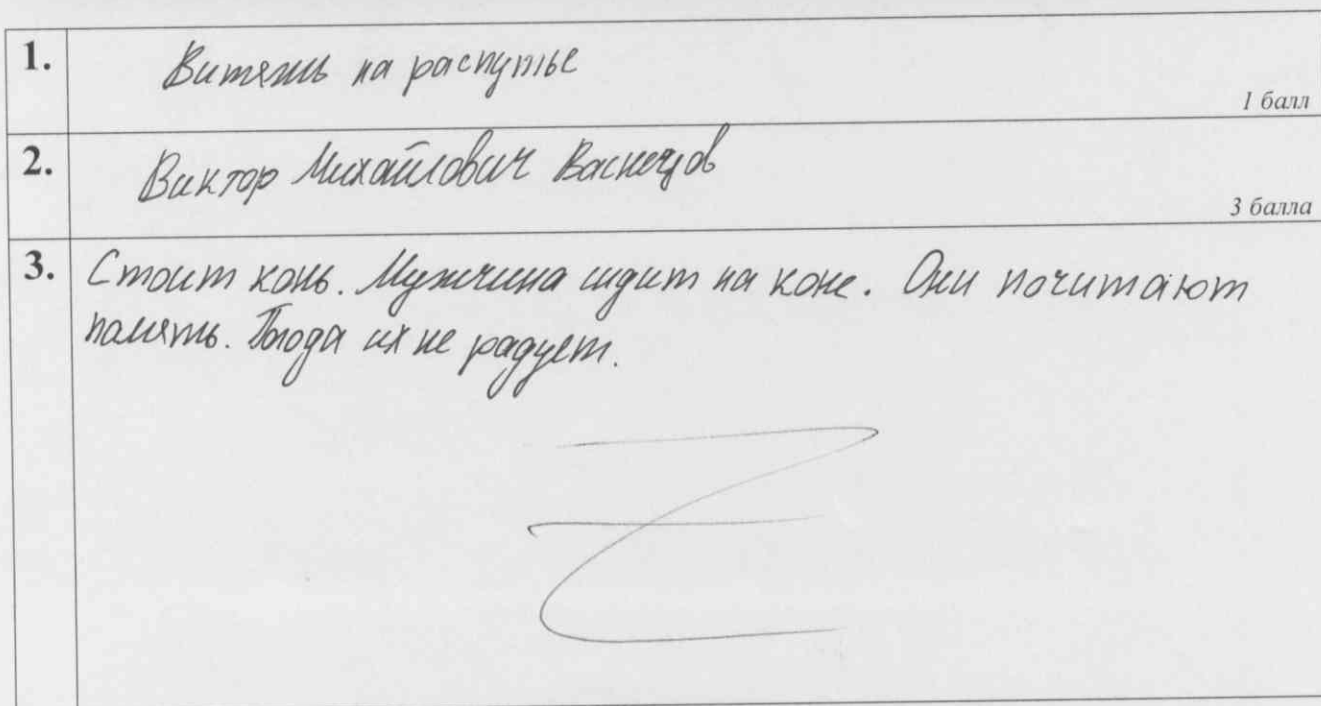 1. Витязь на распутье
1 балл
2. Виктор Михайлович Васнецов
3 балла
3. Стоит конь. Мужчина сидит на коне. Они почитают
память. их не радует.